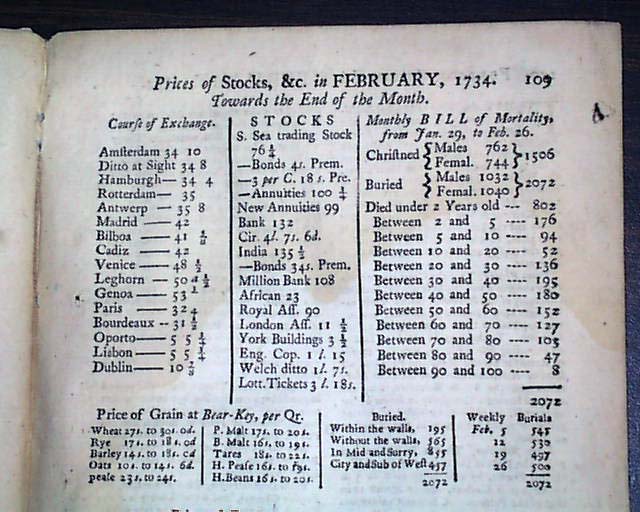 Prices of Stocks, &c. in FEBRUARY, 1734. 109
Towards the End of the Month.
Course of Exchange.
Amsterdam 34 10
Ditto at Sight 34 8
Hamburgh— 34 4
Rotterdam— 35
Antwerp — 35 8
Madrid — 42
Bilboa — 41
Cadiz — 42
Venice — 48 ½
Leghorn — 50
Genoa — 53
Paris — 32
Bourdeaux -- 31 ½
Oporto— 5 5
Lisbon— 5 5
Dublin— 10
STOCKS
S. Sea trading Stock
76 ¼
—Bonds 4s. Prem.
—3 per C. 18 s. Pre.
—Annuities 100 ¼
New Annuities 99
Bank 132
Cir. 4l. 7s. 6d.
India 135 ½
—Bonds 34s. Prem.
Million Bank 108
African 23
Royal Ass. 90
London Ass. 11 ½
York Buildings 3 ½
Eng. Cop. 1 l. 15
Welch ditto 1l. 7s.
Lott. Tickets 3 l. 18s.
Monthly BILL of Mortality,
from Jan. 29, to Feb. 26.
Christned { Males 762 Femal. 744 } 1506
Buried { Males 1032 Femal. 1040 } 2072
Died under 2 Years old --- 802
Between 2 and 5 ---- 176
Between 5 and 10 ---- 94
Between 10 and 20 ---- 52
Between 20 and 30 ---- 136
Between 30 and 40 ---- 195
Between 40 and 50 ---- 180
Between 50 and 60 ---- 152
Between 60 and 70 ---- 127
Between 70 and 80 ---- 103
Between 80 and 90 ---- 47
Between 90 and 100 ---- 8
2072
Price of Grain at Bear-Key, per Qr.
Wheat 27s. to 30s. 0d.
Rye 17s. to 18s. 0d
Barley 14s. to 18s. 0d
Oats 10s. to 14s. 6d.
Pease 23s. to 24s.
P. Malt 17s. to 20s.
B. Malt 16s. to 19s.
Tares 18s. to 22s.
H. Pease 16s. to 19s.
H. Beans 16s. to 20s.
Buried.
Within the walls, 195
Without the walls, 565
In Mid and Surry, 855
City and Sub of West 457
2072
Weekly Burials
Feb. 5 545
12 530
19 497
26 500
2072